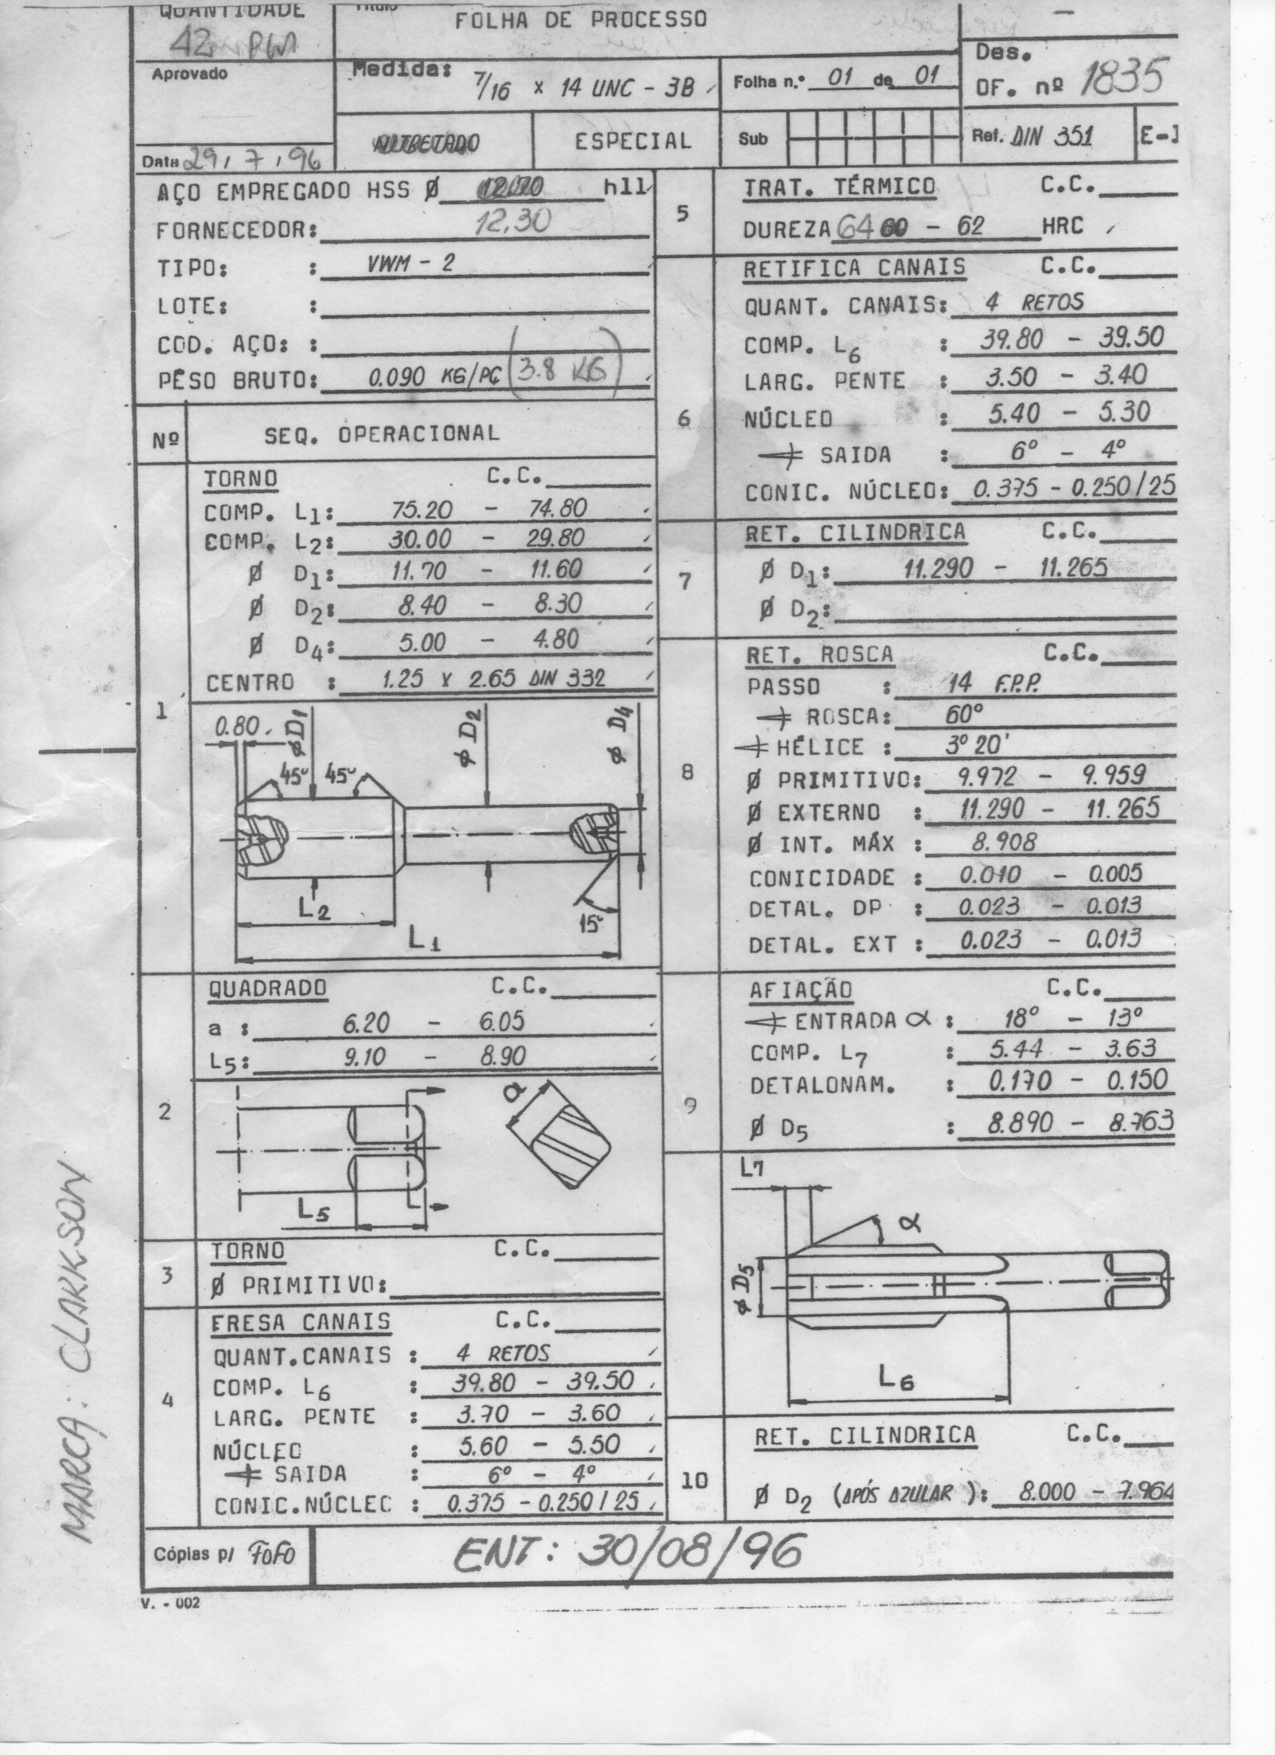 QUANTIDADE
42
Título
FOLHA DE PROCESSO
Aprovado
Data 29/7/96
Medida: 7/16 x 14 UNC - 3B
ESPECIAL
Folha n.º 01 de 01
Sub
Des.
OF. nº 1835
Ref. DIN 351
AÇO EMPREGADO HSS Ø h11
12,30
FORNECEDOR:
TIPO: : VWM - 2
LOTE: :
COD. AÇO: :
PESO BRUTO: 0.090 KG/PÇ (3.8 KG)
Nº SEQ. OPERACIONAL
1
TORNO C.C.
COMP. L1: 75.20 - 74.80
COMP. L2: 30.00 - 29.80
Ø D1: 11.70 - 11.60
Ø D2: 8.40 - 8.30
Ø D4: 5.00 - 4.80
CENTRO : 1.25 x 2.65 DIN 332
0.80
45º 45º
Ø D1
Ø D2
Ø D4
L2
15º
L1
2
QUADRADO C.C.
a : 6.20 - 6.05
L5: 9.10 - 8.90
a
L5
3
TORNO C.C.
Ø PRIMITIVO:
4
FRESA CANAIS C.C.
QUANT.CANAIS : 4 RETOS
COMP. L6 : 39.80 - 39.50
LARG. PENTE : 3.70 - 3.60
NÚCLEO : 5.60 - 5.50
SAIDA : 6º - 4º
CONIC.NÚCLEO : 0.375 - 0.250/25
5
TRAT. TÉRMICO C.C.
DUREZA 64 60 - 62 HRC
6
RETIFICA CANAIS C.C.
QUANT. CANAIS: 4 RETOS
COMP. L6 : 39.80 - 39.50
LARG. PENTE : 3.50 - 3.40
NÚCLEO : 5.40 - 5.30
SAIDA : 6º - 4º
CONIC. NÚCLEO: 0.375 - 0.250/25
7
RET. CILINDRICA C.C.
Ø D1: 11.290 - 11.265
Ø D2:
8
RET. ROSCA C.C.
PASSO : 14 F.P.P.
ROSCA: 60º
HÉLICE : 3º 20'
Ø PRIMITIVO: 9.972 - 9.959
Ø EXTERNO : 11.290 - 11.265
Ø INT. MÁX : 8.908
CONICIDADE : 0.010 - 0.005
DETAL. DP : 0.023 - 0.013
DETAL. EXT : 0.023 - 0.013
9
AFIAÇÃO C.C.
ENTRADA α : 18º - 13º
COMP. L7 : 5.44 - 3.63
DETALONAM. : 0.170 - 0.150
Ø D5 : 8.890 - 8.763
L7
α
Ø D5
L6
10
RET. CILINDRICA C.C.
Ø D2 (APÓS AZULAR ): 8.000 - 7.964
Cópias p/ FOFO
ENT: 30/08/96
V. - 002
MARCA: CLARKSON